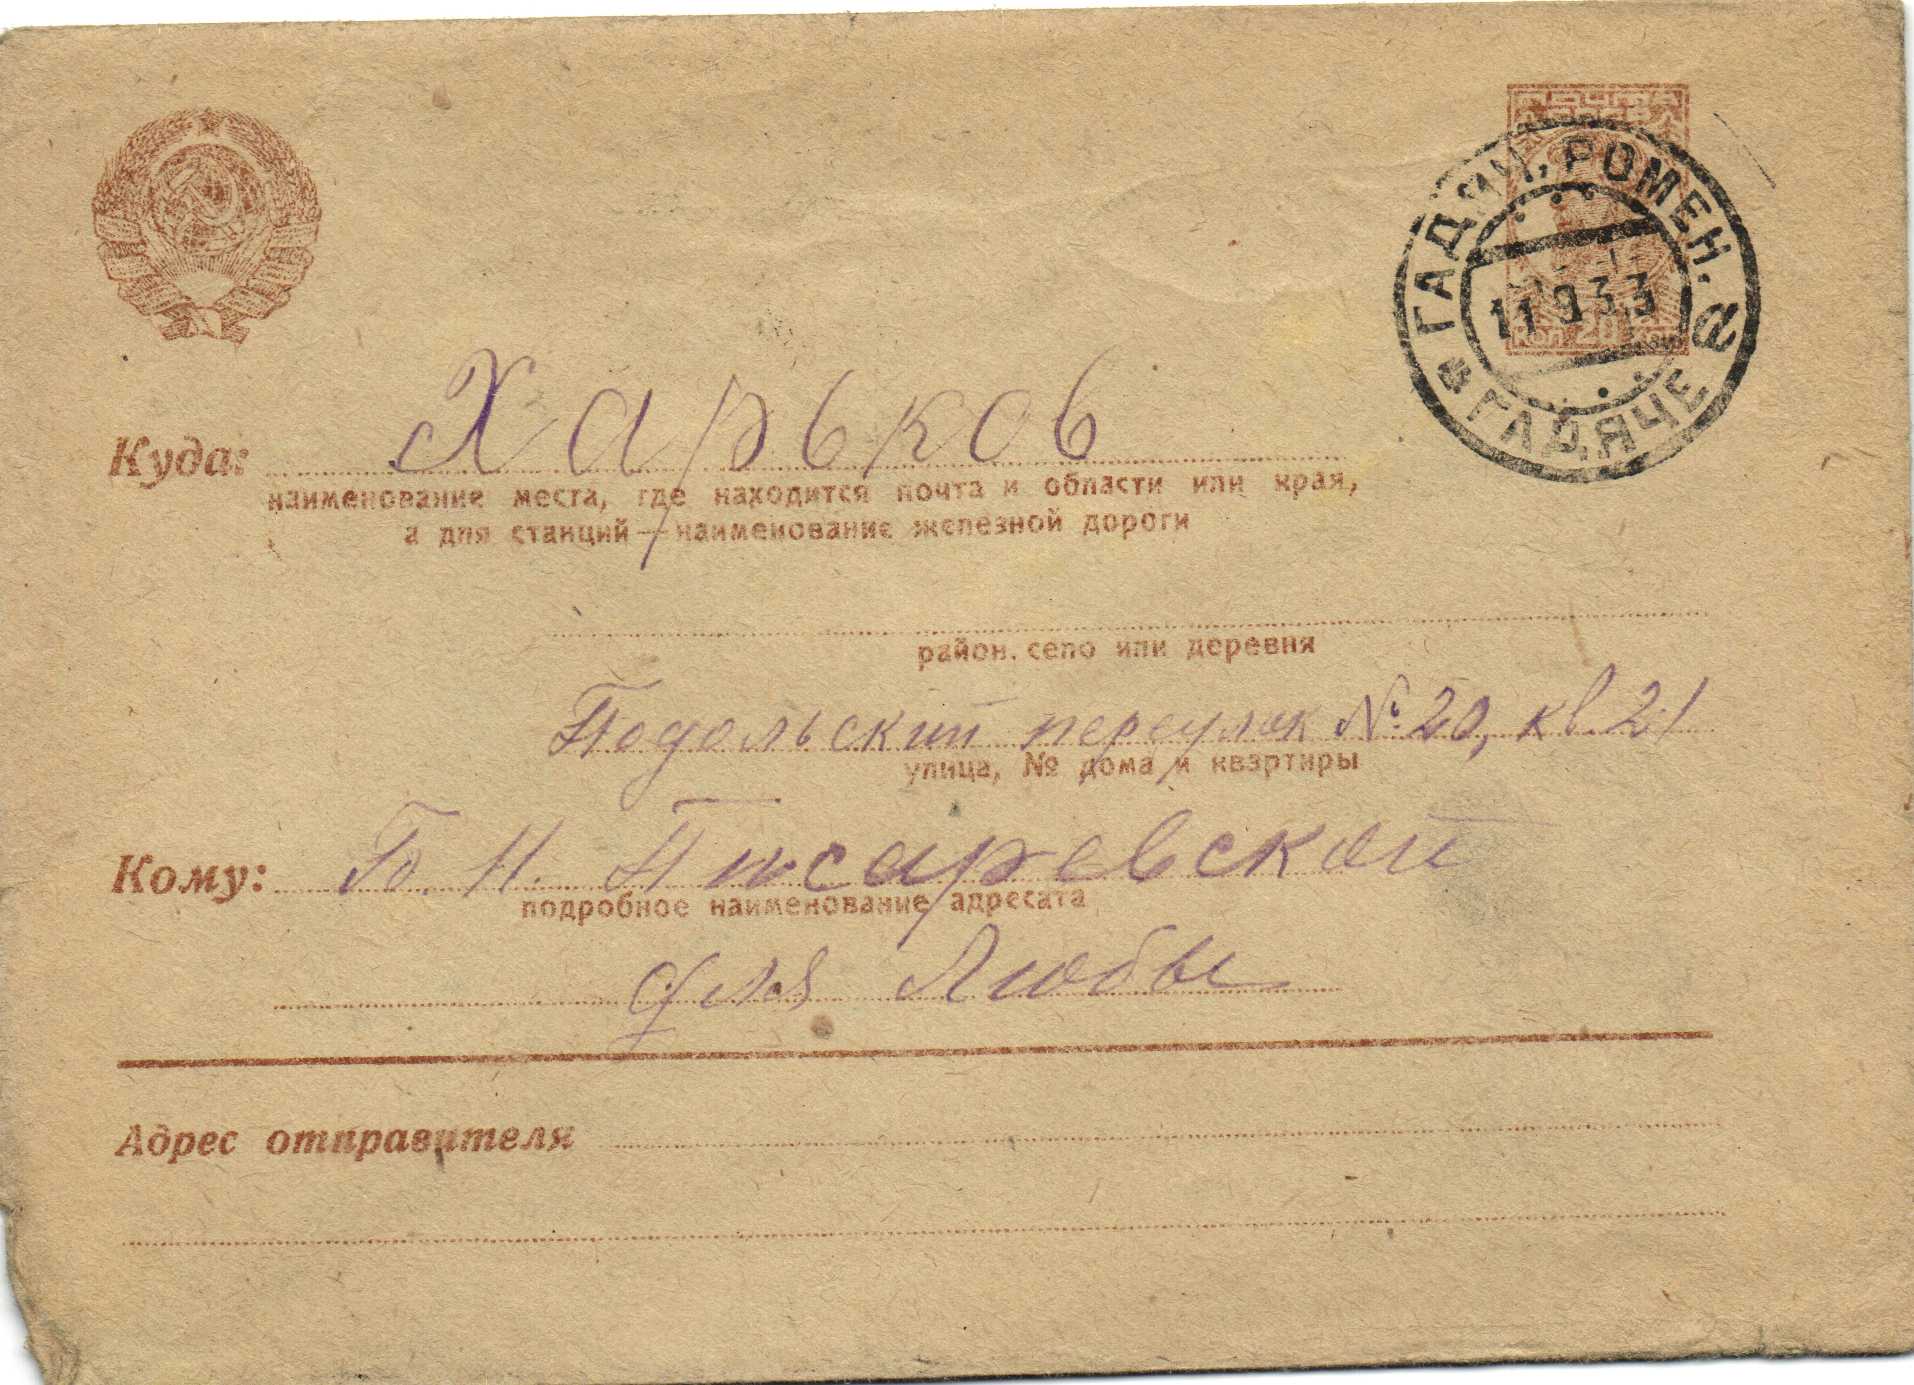 ПОЧТА
ГАДЯЧ, РОМЕН.
11 9 33
КОП. 20 КОП.
ГАДЯЧЕ
Куда: Харьков
наименование места, где находится почта и области или края,
а для станций — наименование железной дороги
район, село или деревня
Подольский переулок № 20, кв. 21
улица, № дома и квартиры
Кому: Б. Н. Писаревской
подробное наименование адресата
для Любы
Адрес отправителя